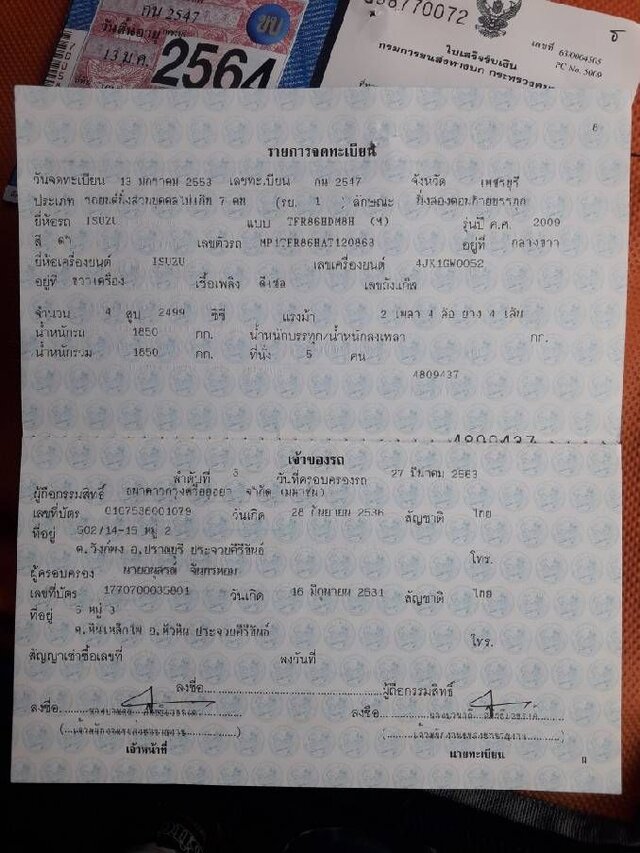 กน 2547
วันสิ้นอายุ
13 ม.ค. 2564
770072
เลขที่ 63/0004565
ใบเสร็จรับเงิน PC No.
กรมการขนส่งทางบก กระทรวงคม
6
รายการจดทะเบียน
วันจดทะเบียน 13 มกราคม 2553 เลขทะเบียน กน 2547 จังหวัด เพชรบุรี
ประเภท รถยนต์นั่งส่วนบุคคลไม่เกิน 7 คน (รย. 1 ) ลักษณะ นั่งสองตอนท้ายบรรทุก
ยี่ห้อรถ ISUZU แบบ TFR86HDM8H (M) รุ่นปี ค.ศ. 2009
สี ดำ เลขตัวรถ MP1TFR86HAT120863 อยู่ที่ กลางขวา
ยี่ห้อเครื่องยนต์ ISUZU เลขเครื่องยนต์ 4JK1GW0052
อยู่ที่ ขวาเครื่อง เชื้อเพลิง ดีเซล เลขถังแก๊ส
จำนวน 4 สูบ 2499 ซีซี แรงม้า 2 เพลา 4 ล้อ ยาง 4 เส้น
น้ำหนักรถ 1850 กก. น้ำหนักบรรทุก/น้ำหนักลงเพลา กก.
น้ำหนักรวม 1850 กก. ที่นั่ง 5 คน
4809437
4809437
เจ้าของรถ
ลำดับที่ 3 วันที่ครอบครองรถ 27 มีนาคม 2563
ผู้ถือกรรมสิทธิ์ ธนาคารกรุงศรีอยุธยา จำกัด (มหาชน)
เลขที่บัตร 0107536001079 วันเกิด 28 กันยายน 2536 สัญชาติ ไทย
ที่อยู่ 502/14-15 หมู่ 2
ต.วังก์พง อ.ปราณบุรี ประจวบคีรีขันธ์ โทร.
ผู้ครอบครอง นายอนุสรณ์ จันทรหอม
เลขที่บัตร 1770700035001 วันเกิด 16 มิถุนายน 2531 สัญชาติ ไทย
ที่อยู่ 5 หมู่ 3
ต.หินเหล็กไฟ อ.หัวหิน ประจวบคีรีขันธ์ โทร.
สัญญาเช่าซื้อเลขที่ ลงวันที่
ลงชื่อ ผู้ถือกรรมสิทธิ์
ลงชื่อ ลงชื่อ
เจ้าหน้าที่ นายทะเบียน